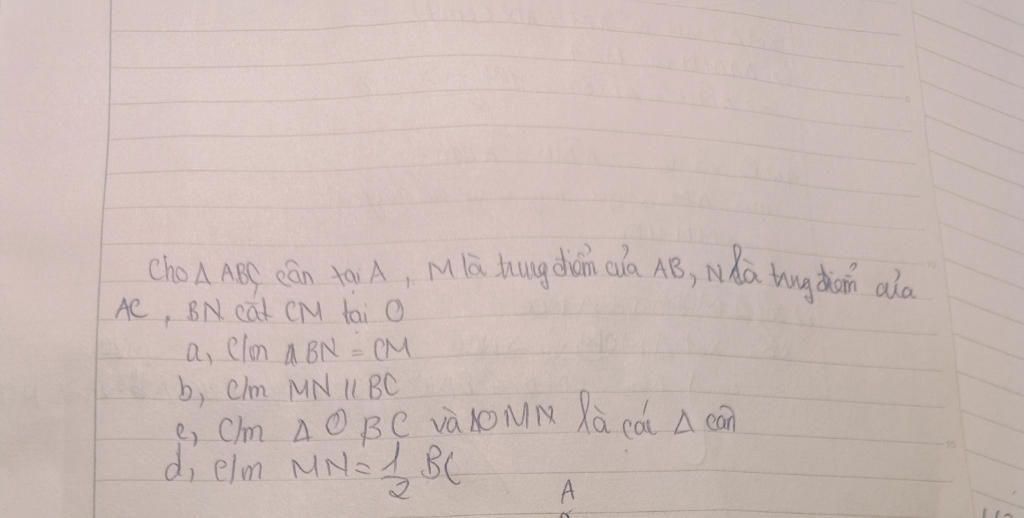 Cho Δ ABC cân tại A, M là trung điểm của AB, N là trung điểm của
AC, BN cắt CM tại O
a, C/m Δ BN = CM
b, c/m MN // BC
c, C/m Δ OBC và ΔOMN là các Δ cân
d, c/m MN = 1/2 BC
A